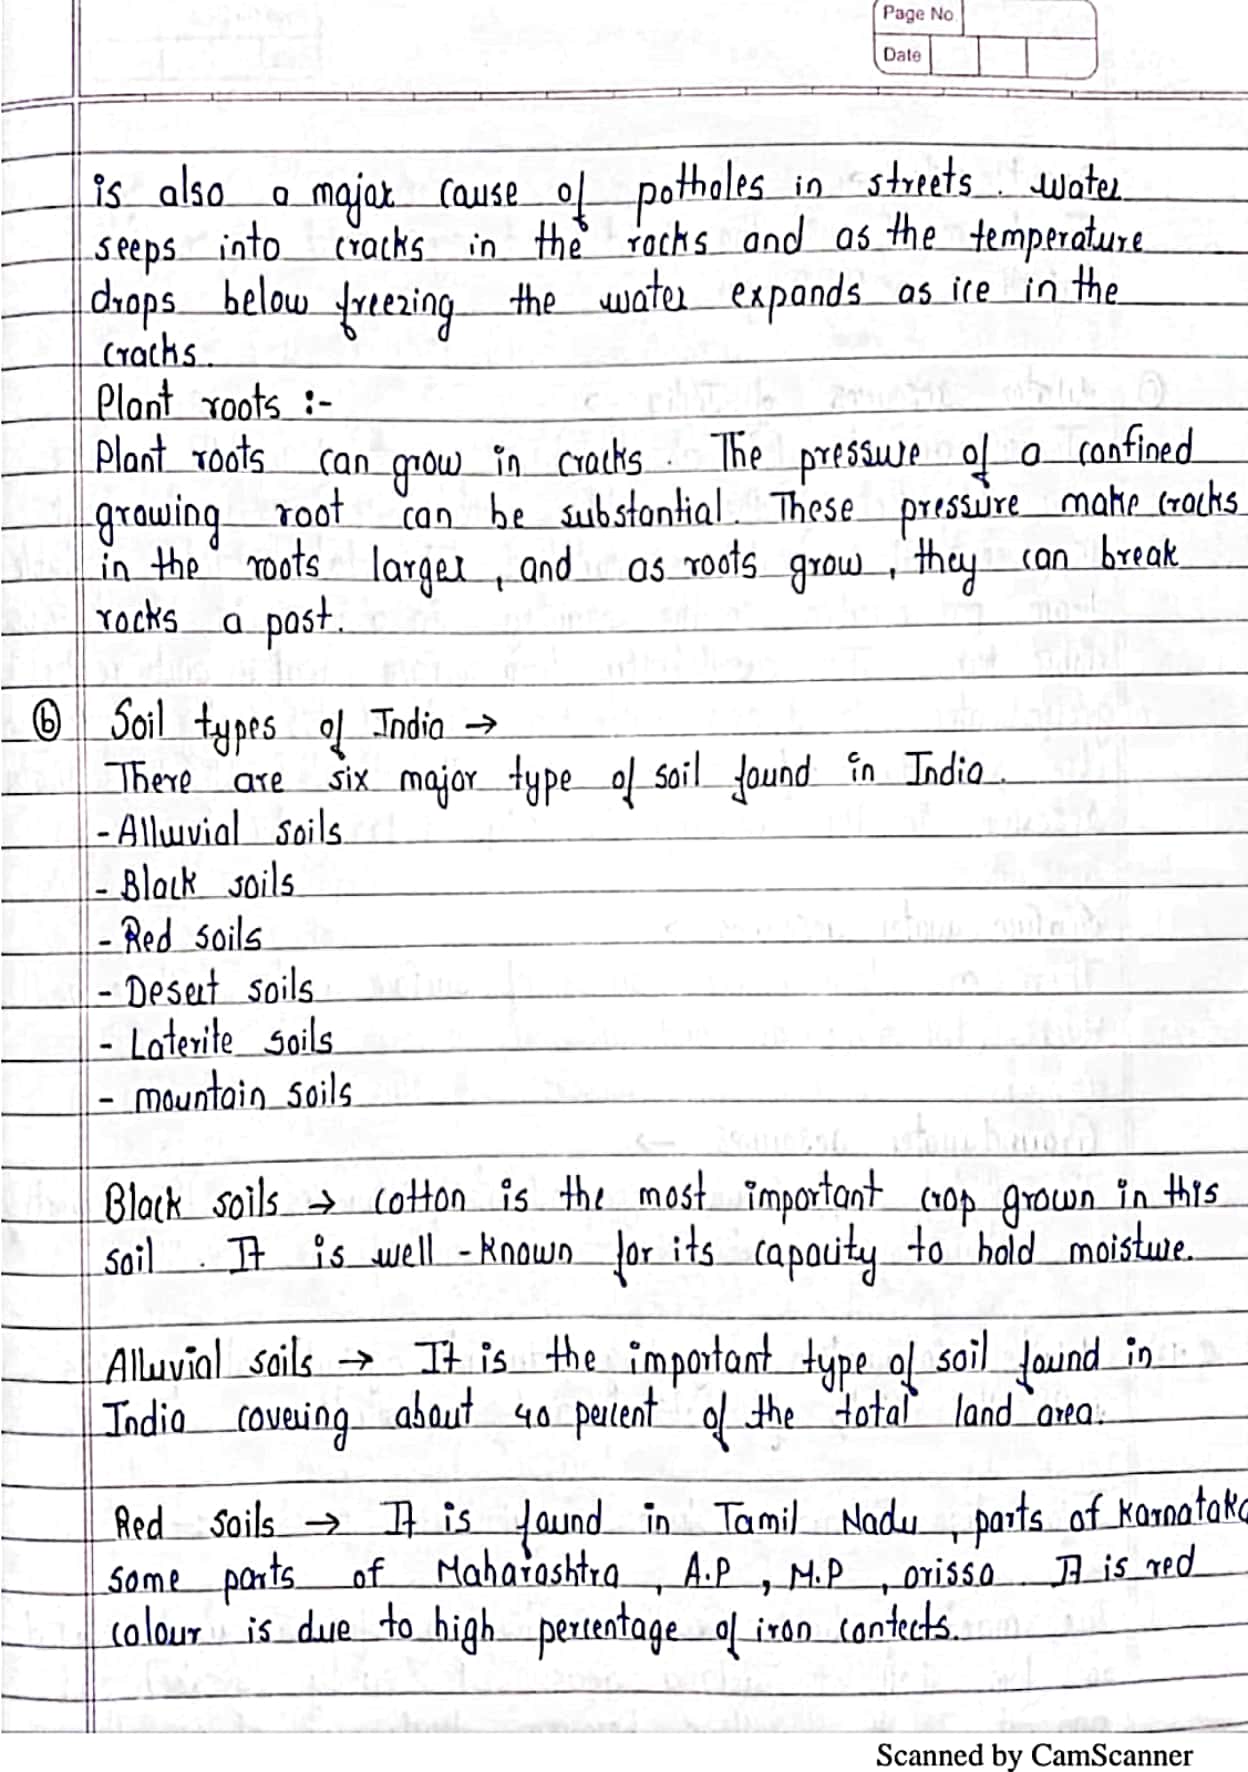 Page No.
Date
is also a major cause of potholes in streets. water
seeps into cracks in the rocks and as the temperature
drops below freezing the water expands as ice in the
cracks.
Plant roots :-
Plant roots can grow in cracks. The pressure of a confined
growing root can be substantial. These pressure make cracks
in the roots larger, and as roots grow, they can break
rocks a past.
ⓑ Soil types of India →
There are six major type of soil found in India.
- Alluvial soils
- Black soils
- Red soils
- Desert soils
- Laterite soils
- mountain soils
Black soils → cotton is the most important crop grown in this
soil. It is well-known for its capacity to hold moisture.
Alluvial soils → It is the important type of soil found in
India covering about 40 percent of the total land area.
Red soils → It is found in Tamil Nadu, parts of Karnataka
some parts of Maharashtra, A.P, M.P, orissa. It is red
colour is due to high percentage of iron contects.
Scanned by CamScanner